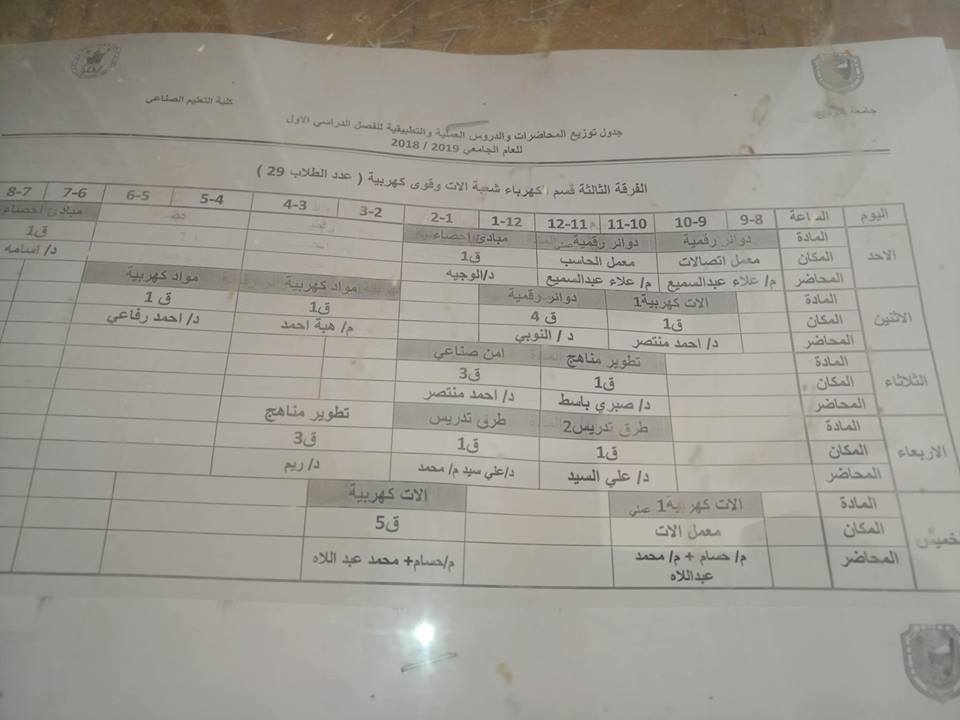 جامعة
كلية التعليم الصناعي
جدول توزيع المحاضرات والدروس العملية والتطبيقية للفصل الدراسي الاول
للعام الجامعي 2019 / 2018
الفرقة الثالثة قسم الكهرباء شعبة الات وقوى كهربية ( عدد الطلاب 29 )
اليوم الساعة 9-8 10-9 11-10 12-11 1-12 2-1 3-2 4-3 5-4 6-5 7-6 8-7
الاحد المادة دوائر رقمية دوائر رقمية مبادئ احصاء مبادئ احصاء
المكان معمل اتصالات معمل الحاسب ق1 ق1
المحاضر م/ علاء عبدالسميع م/ علاء عبدالسميع د/الوجيه د/ اسامه
الاثنين المادة الات كهربية1 دوائر رقمية مواد كهربية مواد كهربية
المكان ق1 ق 4 ق1 ق 1
المحاضر د/ احمد منتصر د/ النوبي م/ هبة احمد د/ احمد رفاعي
الثلاثاء المادة تطوير مناهج امن صناعي
المكان ق1 ق3
المحاضر د/ صبري باسط د/ احمد منتصر
الاربعاء المادة طرق تدريس2 طرق تدريس تطوير مناهج
المكان ق1 ق1 ق3
المحاضر د/ علي السيد د/علي سيد م/ محمد د/ ريم
الخميس المادة الات كهربية1 عملي الات كهربية
المكان معمل الات ق5
المحاضر م/ حسام + م/ محمد م/حسام+ محمد عبد اللاه
عبداللاه